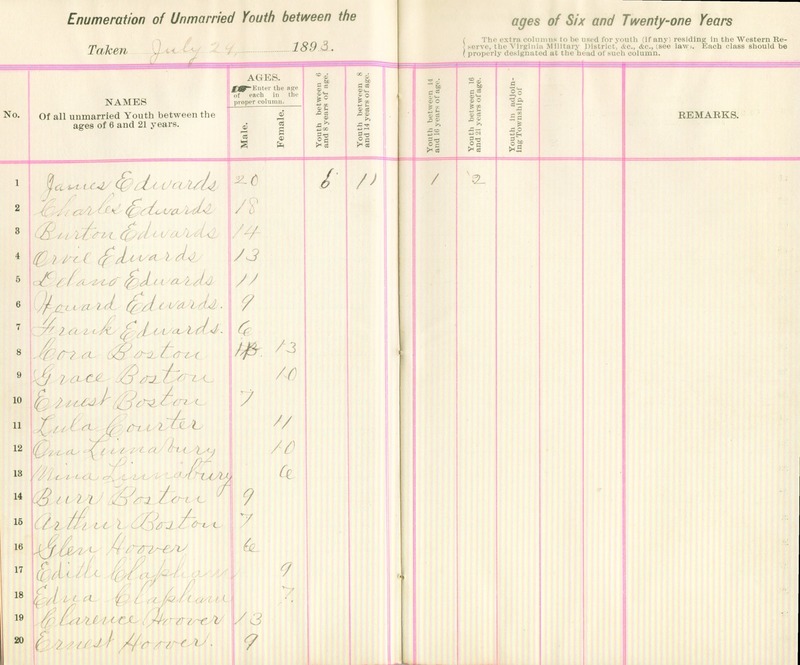 Enumeration of Unmarried Youth between the ages of Six and Twenty-one Years
Taken July 24 1893.
The extra columns to be used for youth (if any) residing in the Western Re-
serve, the Virginia Military District, &c., &c., (see law). Each class should be
properly designated at the head of such column.
No.
NAMES
Of all unmarried Youth between the
ages of 6 and 21 years.
AGES.
Enter the age
of each in the
proper column.
Male.
Female.
Youth between 6
and 8 years of age.
Youth between 8
and 14 years of age.
Youth between 14
and 16 years of age.
Youth between 16
and 21 years of age.
Youth in adjoin-
ing Township of
REMARKS.
1 James Edwards 20 6 11 1 2
2 Charles Edwards 18
3 Burton Edwards 14
4 Orvil Edwards 13
5 Delano Edwards 11
6 Howard Edwards. 9
7 Frank Edwards. 6
8 Cora Boston 13
9 Grace Boston 10
10 Ernest Boston 7
11 Lula Courter 11
12 Ona Linnabury 10
13 Mina Linnabury 6
14 Burr Boston 9
15 Arthur Boston 7
16 Glen Hoover 6
17 Edith Clapham 9
18 Edna Clapham 7.
19 Clarence Hoover 13
20 Ernest Hoover. 9